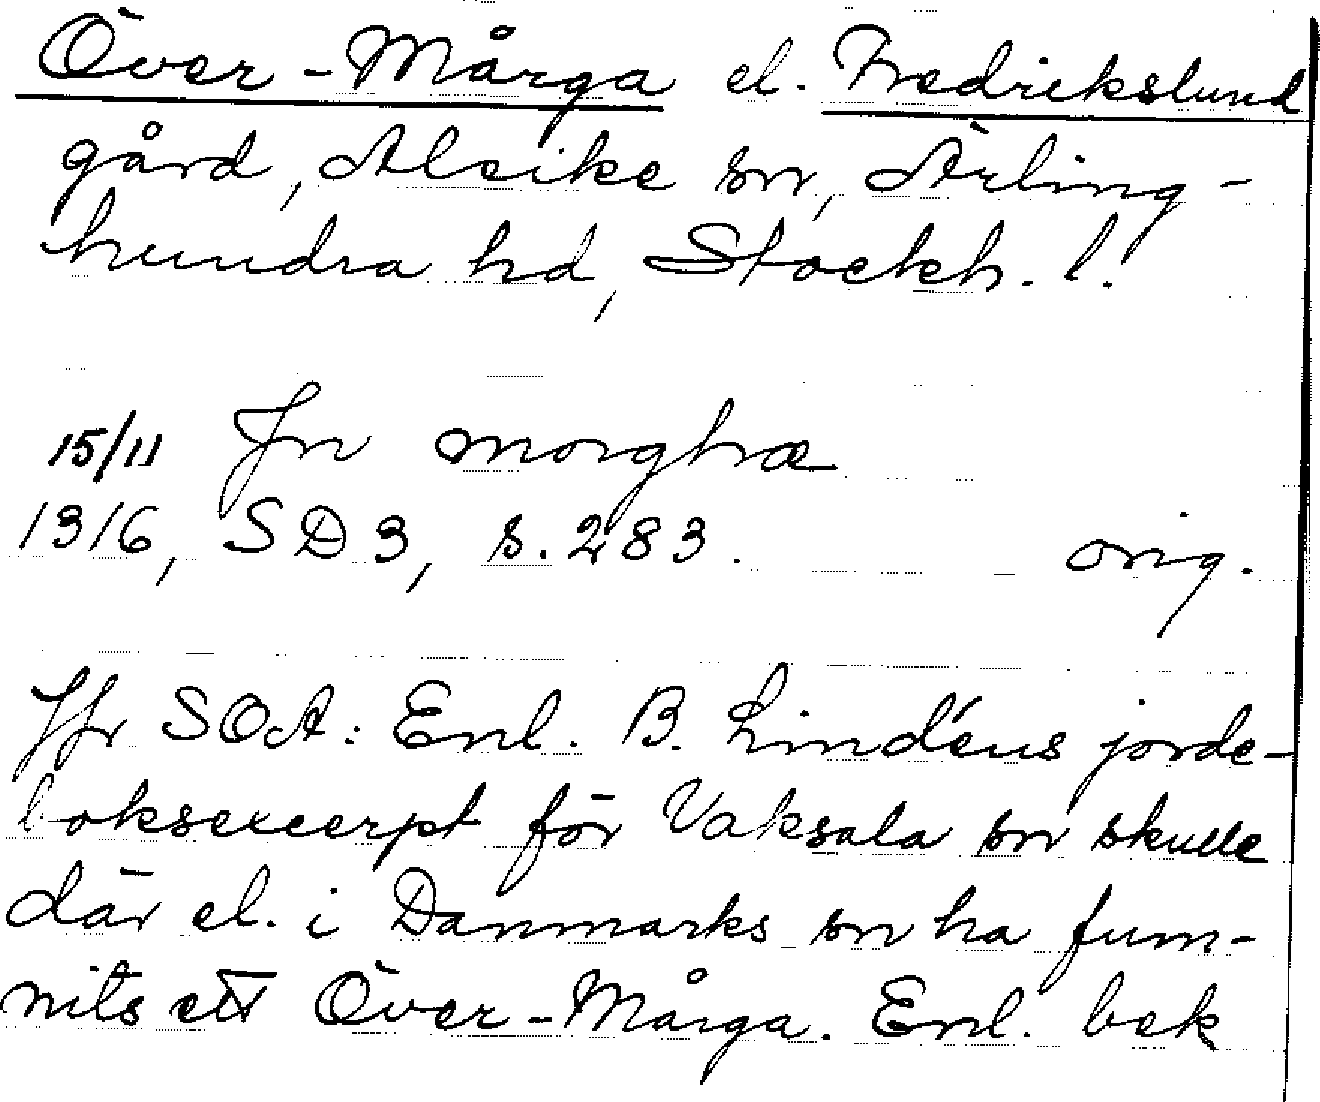 Över-Mårga el. Fredrikslund
gård, Alsike sn, Ärling-
hundra hd, Stockh. l.
15/11 Jn morghæ
1316, SD 3, s. 283. orig.
Jfr SOA: Enl. B. Lindéns jorde-
boksexcerpt för Vaksala sn skulle
där el. i Danmarks sn ha fun-
nits ett Över-Mårga. Enl. bek